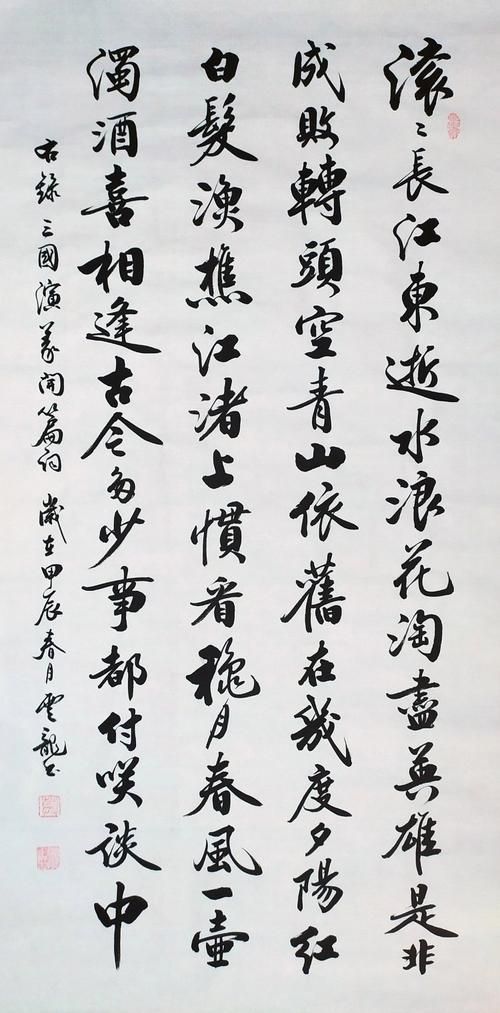 滚〻長江東逝水浪花淘盡英雄是非
成敗轉頭空青山依舊在幾度夕陽紅
白髮漁樵江渚上慣看秋月春風一壺
濁酒喜相逢古今多少事都付咲談中
右錄三國演義開篇詞 歲在甲辰春月雲龍书